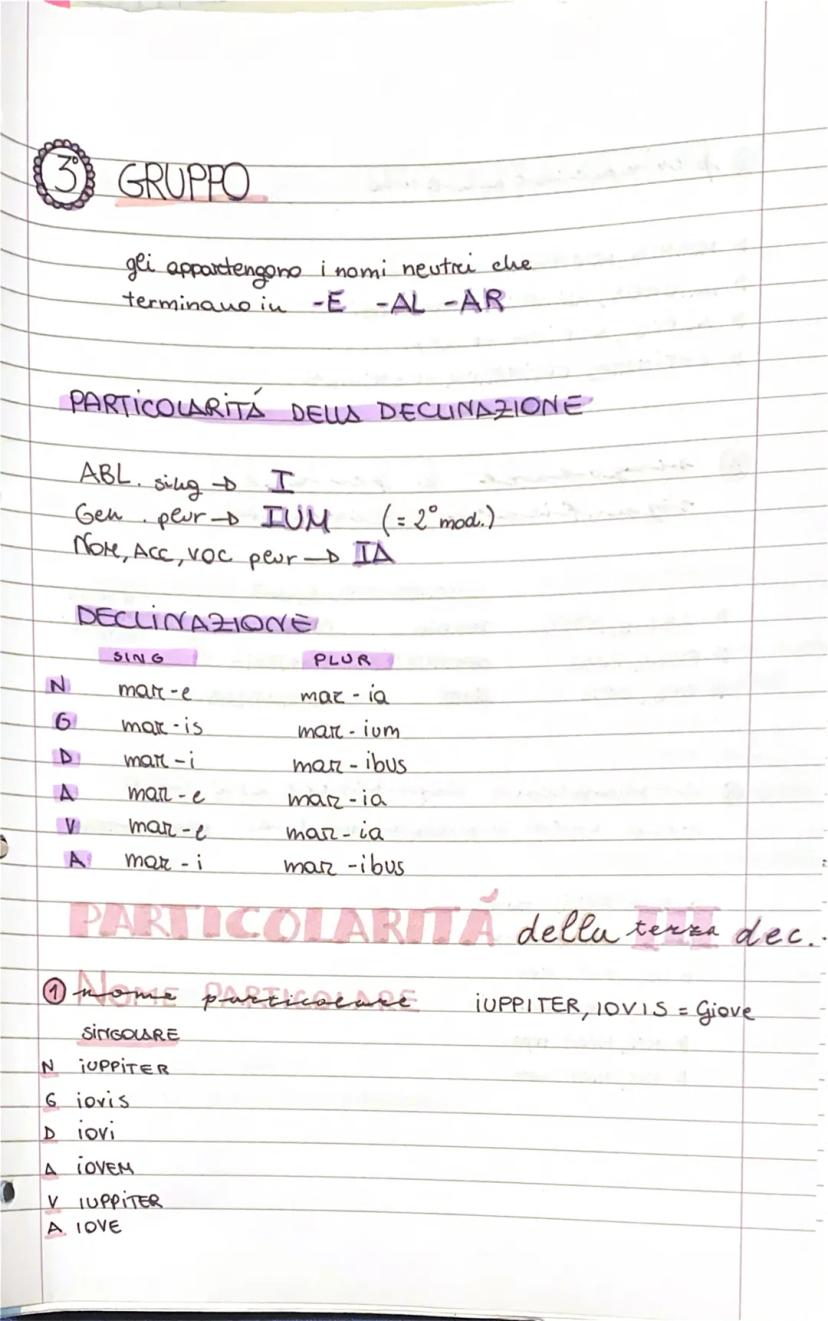 3° GRUPPO
gli appartengono i nomi neutri che
terminano in -E -AL -AR
PARTICOLARITÁ DELLA DECLINAZIONE
ABL. sing → I
Gen. plur → IUM (= 2° mod.)
Nom, ACC, VOC plur → IA
DECLINAZIONE
SING PLUR
N mar-e mar-ia
G mar-is mar-ium
D mar-i mar-ibus
A mar-e mar-ia
V mar-e mar-ia
A mar-i mar-ibus
PARTICOLARITÁ della terza dec.
1 Nome particolare IUPPITER, IOVIS = Giove
SINGOLARE
N IUPPITER
G iovis
D iovi
A IOVEM
V IUPPITER
A IOVE